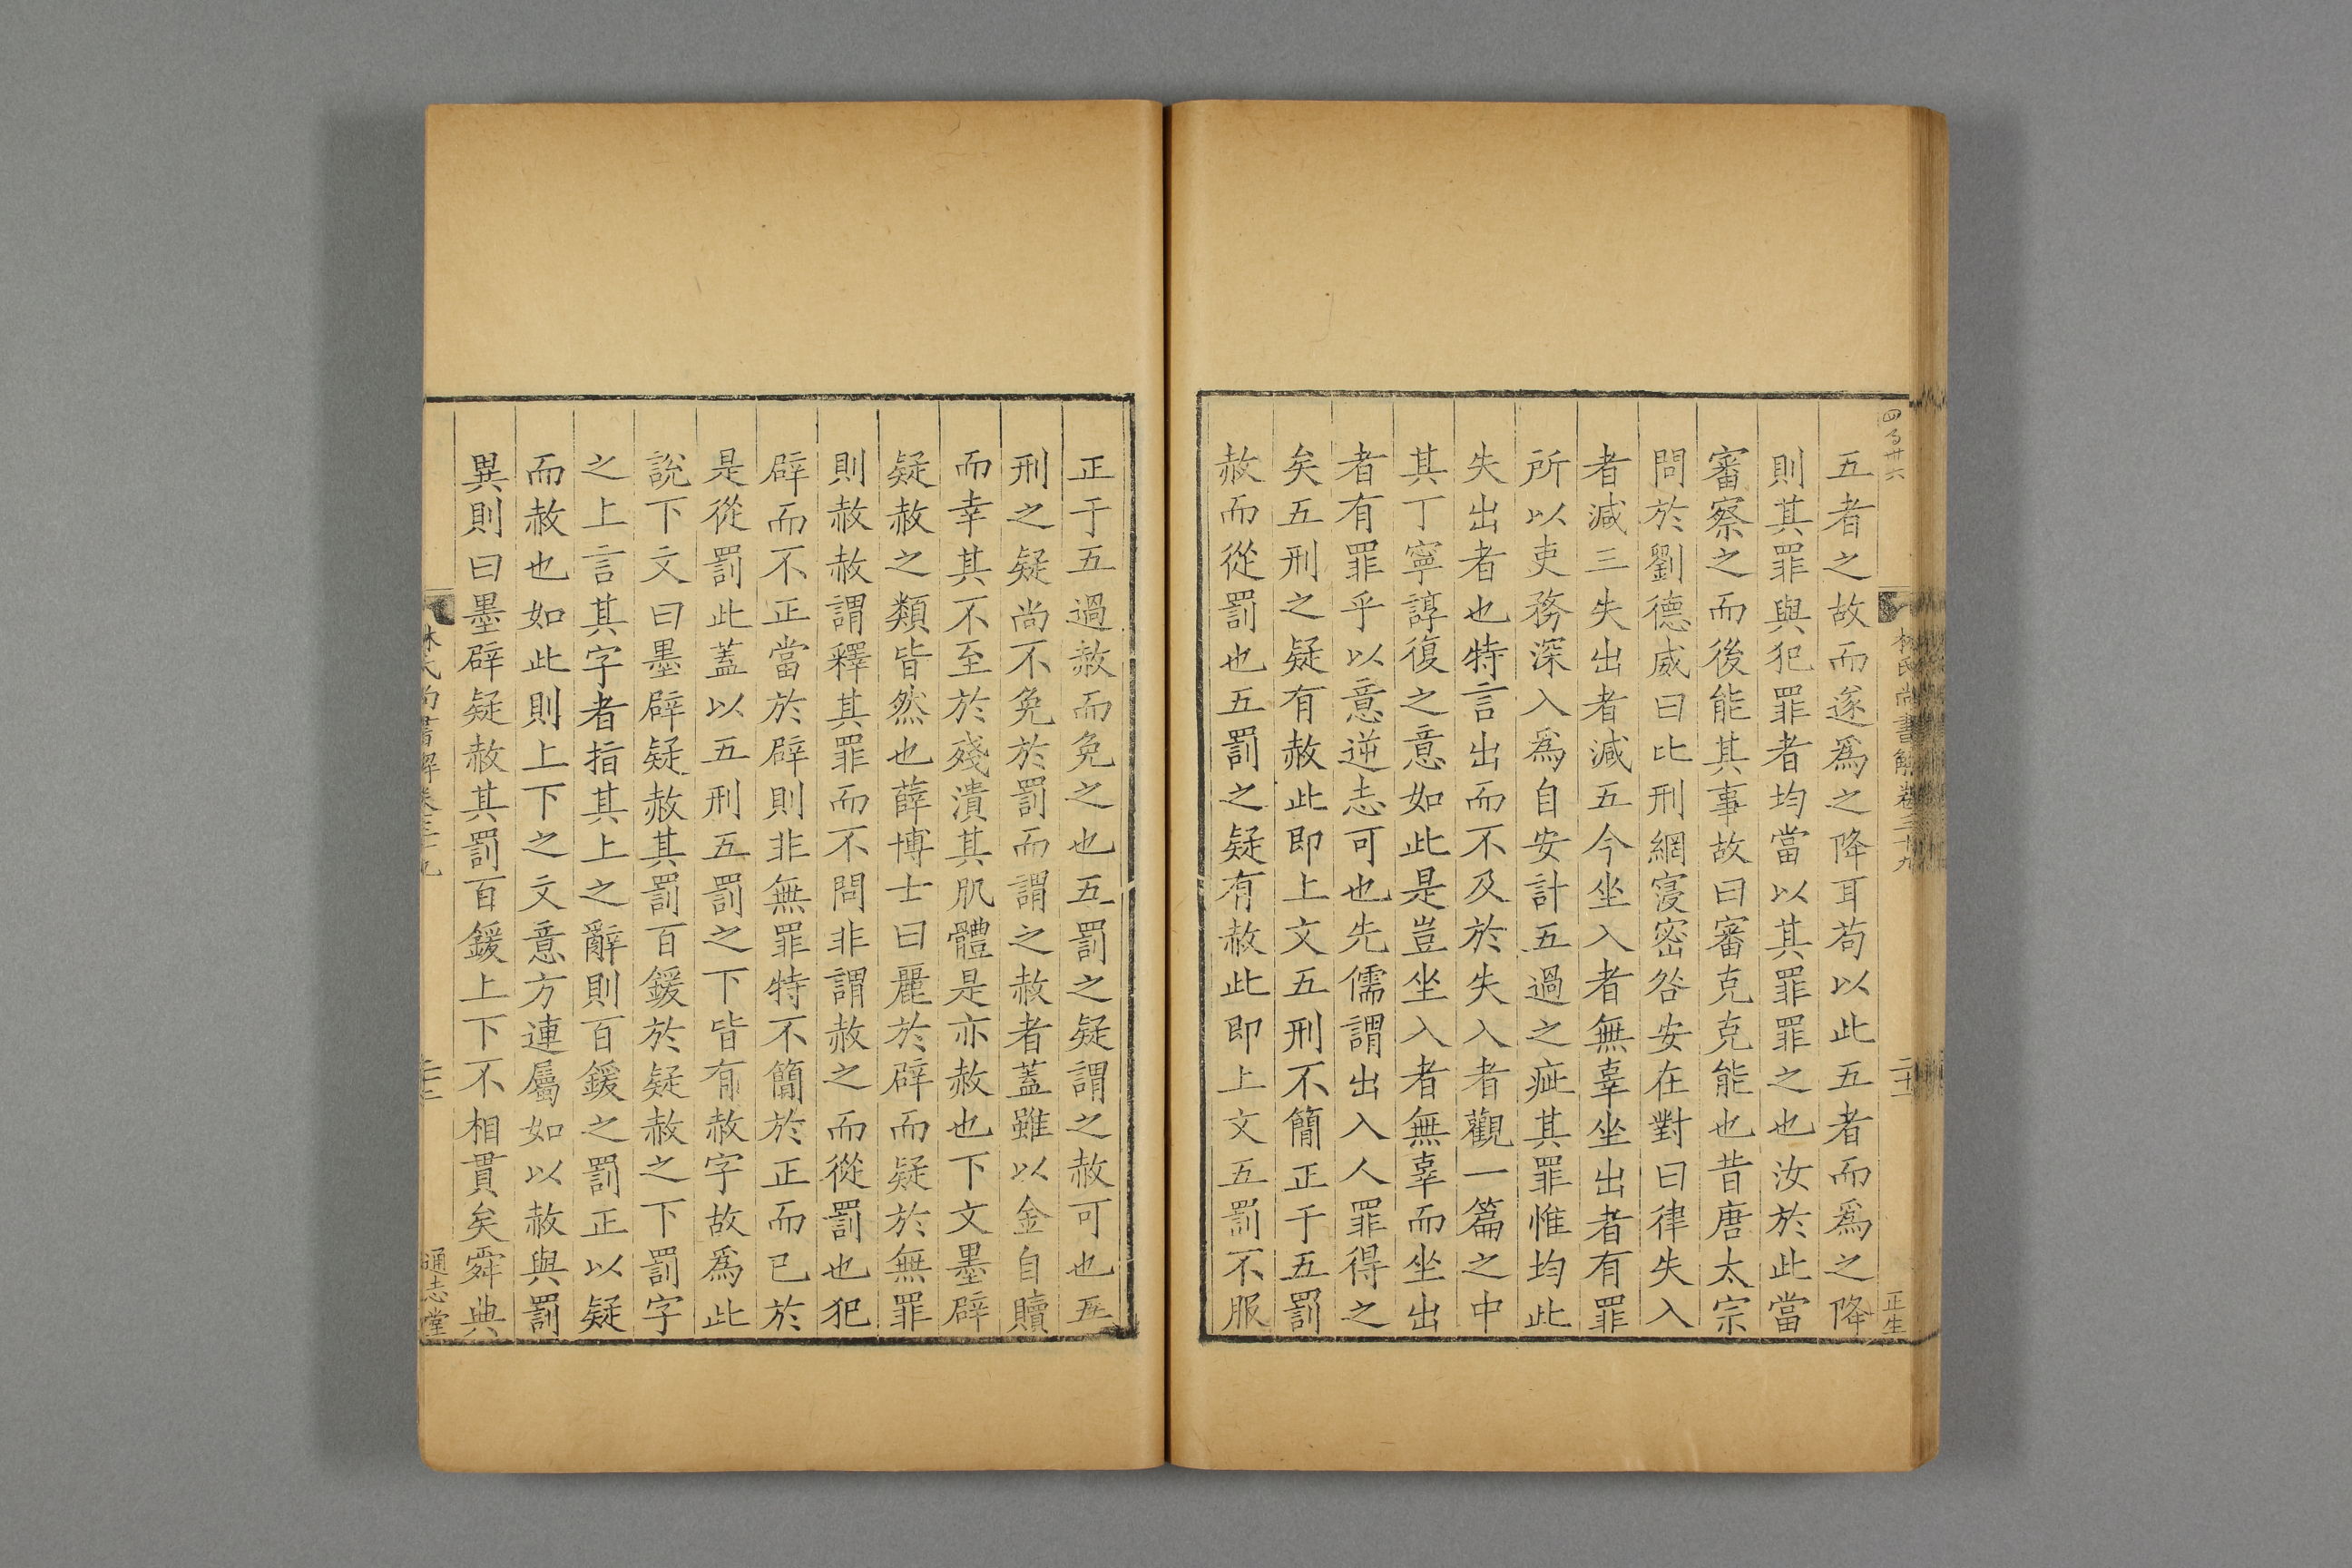 五者之故而遂爲之降耳苟以此五者而爲之降
則其罪與犯罪者均當以其罪罪之也汝於此當
審察之而後能其事故曰審克克能也昔唐太宗
問於劉德威曰比刑網寖密咎安在對曰律失入
者減三失出者減五今坐入者無辜坐出者有罪
所以吏務深入爲自安計五過之疵其罪惟均此
失出者也特言出而不及於失入者觀一篇之中
其丁寧諄復之意如此是豈坐入者無辜而坐出
者有罪乎以意逆志可也先儒謂出入人罪得之
矣五刑之疑有赦此即上文五刑不簡正于五罰
赦而從罰也五罰之疑有赦此即上文五罰不服
正于五過赦而免之也五罰之疑謂之赦可也五
刑之疑尚不免於罰而謂之赦者蓋雖以金自贖
而幸其不至於殘潰其肌體是亦赦也下文墨辟
疑赦之類皆然也薛博士曰麗於辟而疑於無罪
則赦赦謂釋其罪而不問非謂赦之而從罰也犯
辟而不正當於辟則非無罪特不簡於正而已於
是從罰此蓋以五刑五罰之下皆有赦字故爲此
說下文曰墨辟疑赦其罰百鍰於疑赦之下罰字
之上言其字者指其上之辭則百鍰之罰正以疑
而赦也如此則上下之文意方連屬如以赦與罰
異則曰墨辟疑赦其罰百鍰上下不相貫矣舜典
林氏尚書解卷三十九
正生
通志堂